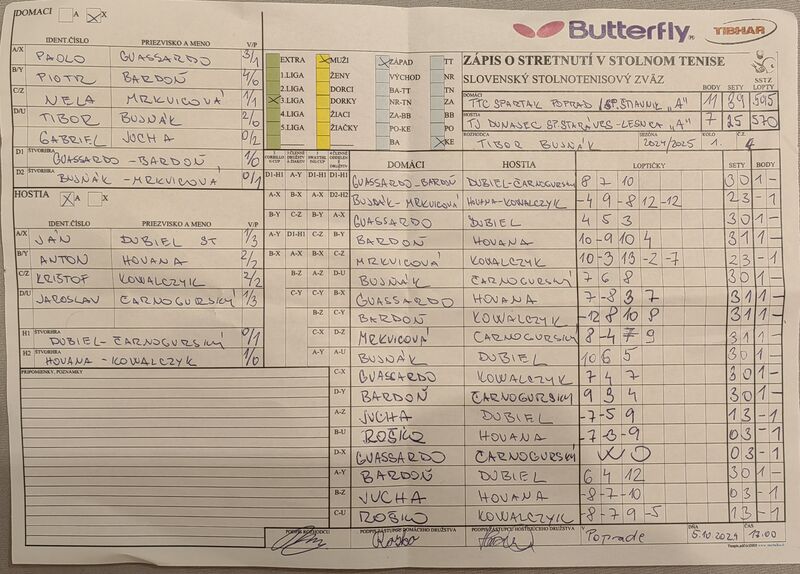 DOMÁCI A X
Butterfly
TIBHAR
IDENT.ČÍSLO PRIEZVISKO A MENO V/P
A/X PAOLO GUASSARDO 3/1
B/Y PIOTR BARDOŇ 4/0
C/Z NELA MRKVICOVÁ 1/1
D/U TIBOR BUJNÁK 2/0
GABRIEL JUCHA 0/2
D1 ŠTVORHRA GUASSARDO-BARDOŇ 1/0
D2 ŠTVORHRA BUJNÁK-MRKVICOVÁ 0/1
HOSTIA A X
IDENT.ČÍSLO PRIEZVISKO A MENO V/P
A/X JÁN DUBIEL ST 1/3
B/Y ANTON HOVANA 2/2
C/Z KRIŠTOF KOWALCZYK 2/2
D/U JAROSLAV ČARNOGURSKÝ 1/3
H1 ŠTVORHRA DUBIEL-ČARNOGURSKÝ 0/1
H2 ŠTVORHRA HOVANA-KOWALCZYK 1/0
PRIPOMIENKY, POZNÁMKY
EXTRA MUŽI ZÁPAD TT
1.LIGA ŽENY VÝCHOD NR
2.LIGA DORCI BA-TT TN
3.LIGA DORKY NR-TN ZA
4.LIGA ŽIACI ZA-BB BB
5.LIGA ŽIAČKY PO-KE PO
BA KE
ZÁPIS O STRETNUTÍ V STOLNOM TENISE
SLOVENSKÝ STOLNOTENISOVÝ ZVÄZ
BODY SETY SSTZ LOPTY
DOMÁCI TTC SPARTAK POPRAD /SP.ŠTIAVNIK "A" 11 39 595
HOSTIA TJ DUNAJEC SP.STARÁ VES-LESNICA "A" 7 25 570
ROZHODCA TIBOR BUJNÁK SEZÓNA 2024/2025 KOLO 1. Č.Z. 4
DOMÁCI HOSTIA LOPTIČKY SETY BODY
D1-H1 A-Y D1-H1 D1-H1 GUASSARDO-BARDOŇ DUBIEL-ČARNOGURSKÝ 8 7 10 3 0 1 -
A-X B-X A-X D2-H2 BUJNÁK-MRKVICOVÁ HOVANA-KOWALCZYK -4 9 -8 12 -12 2 3 - 1
B-Y C-Z B-Y A-X GUASSARDO DUBIEL 4 5 3 3 0 1 -
A-Y D1-H1 C-Z B-Y BARDOŇ HOVANA 10 -9 10 4 3 1 1 -
B-X A-X B-X C-Z MRKVICOVÁ KOWALCZYK 10 -3 13 -2 -7 2 3 - 1
B-Z A-Z D-U BUJNÁK ČARNOGURSKÝ 7 6 8 3 0 1 -
C-Y C-Y B-X GUASSARDO HOVANA 7 -8 3 7 3 1 1 -
B-Z C-Y BARDOŇ KOWALCZYK -12 8 10 8 3 1 1 -
C-X D-Z MRKVICOVÁ ČARNOGURSKÝ 8 -4 7 9 3 1 1 -
A-Y A-U BUJNÁK DUBIEL 10 6 5 3 0 1 -
C-X GUASSARDO KOWALCZYK 7 4 7 3 0 1 -
D-Y BARDOŇ ČARNOGURSKÝ 9 3 4 3 0 1 -
A-Z JUCHA DUBIEL -7 -5 9 1 3 - 1
B-U ROŠKO HOVANA -7 -3 -9 0 3 - 1
D-X GUASSARDO ČARNOGURSKÝ WO 0 3 - 1
A-Y BARDOŇ DUBIEL 6 4 12 3 0 1 -
B-Z JUCHA HOVANA -8 -7 -10 0 3 - 1
C-U ROŠKO KOWALCZYK -8 -7 9 -5 1 3 - 1
PODPIS ROZHODCU PODPIS ZÁSTUPCE DOMÁCEHO DRUŽSTVA Roško PODPIS ZÁSTUPCE HOSŤUJÚCEHO DRUŽSTVA V Poprade DŇA 5.10 2024 ČAS 17:00